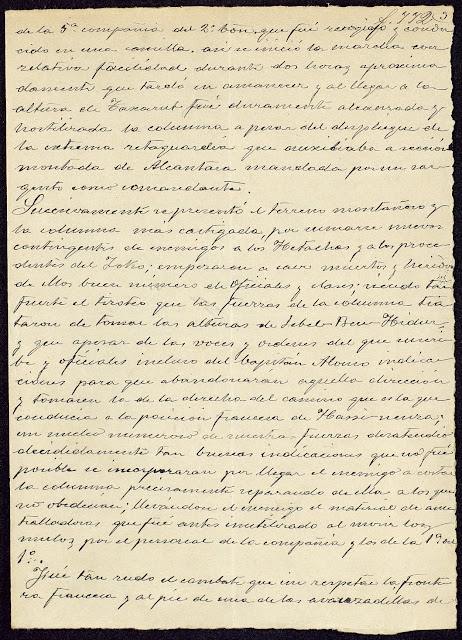 f. 772
de la 5ª compañia, del 2º Bon, que fué recogido y condu
cido en una camilla. asi se inició la marcha con
relativa facilidad durante dos horas aproxima
damente que tardó en amanecer y al llegar a la
altura de Taxarut fué duramente alcanzada y
hostilizada la columna a pesar del despliegue de
la extrema retaguardia que auxiliaba a sección
montada de Alcantara mandada por un sar
gento como comandante.
Sucesivamente se presentó el terreno montañoso y
la columna más castigada, por sumarse nuevos
contingentes de enemigos a los Metachas y a los proce
dentes del Zoko; empezaron a caer muertos y heridos
de ellos buen número de oficiales y clases; siendo tan
fuerte el tiroteo que las fuerzas de la columna tra
taron de tomar las alturas de Yebel-Ben-Hidur
y que apesar de las voces y ordenes del que suscri
be y oficiales incluso del Capitán Alonso indica
ciones para que abandonaran aquella dirección
y tomasen la de la derecha del camino que es la que
conducia a la posición francesa de Hassi-
un nucleo numeroso de nuestras fuerzas desatendió
decididamente tan buenas indicaciones que no fué
posible se incorporaran por llegar el enemigo a cortar
la columna precisamente separando de ella, a los que
no obedecian; llevandose el enemigo el material de ame
tralladoras que fué antes inutilizado al morir los
mulos, por el personal de la compañia y los de la 1ª del
1º.
Fué tan rudo el combate que sin respetar la fronte
ra francesa y al pie de una de las avanzadillas de